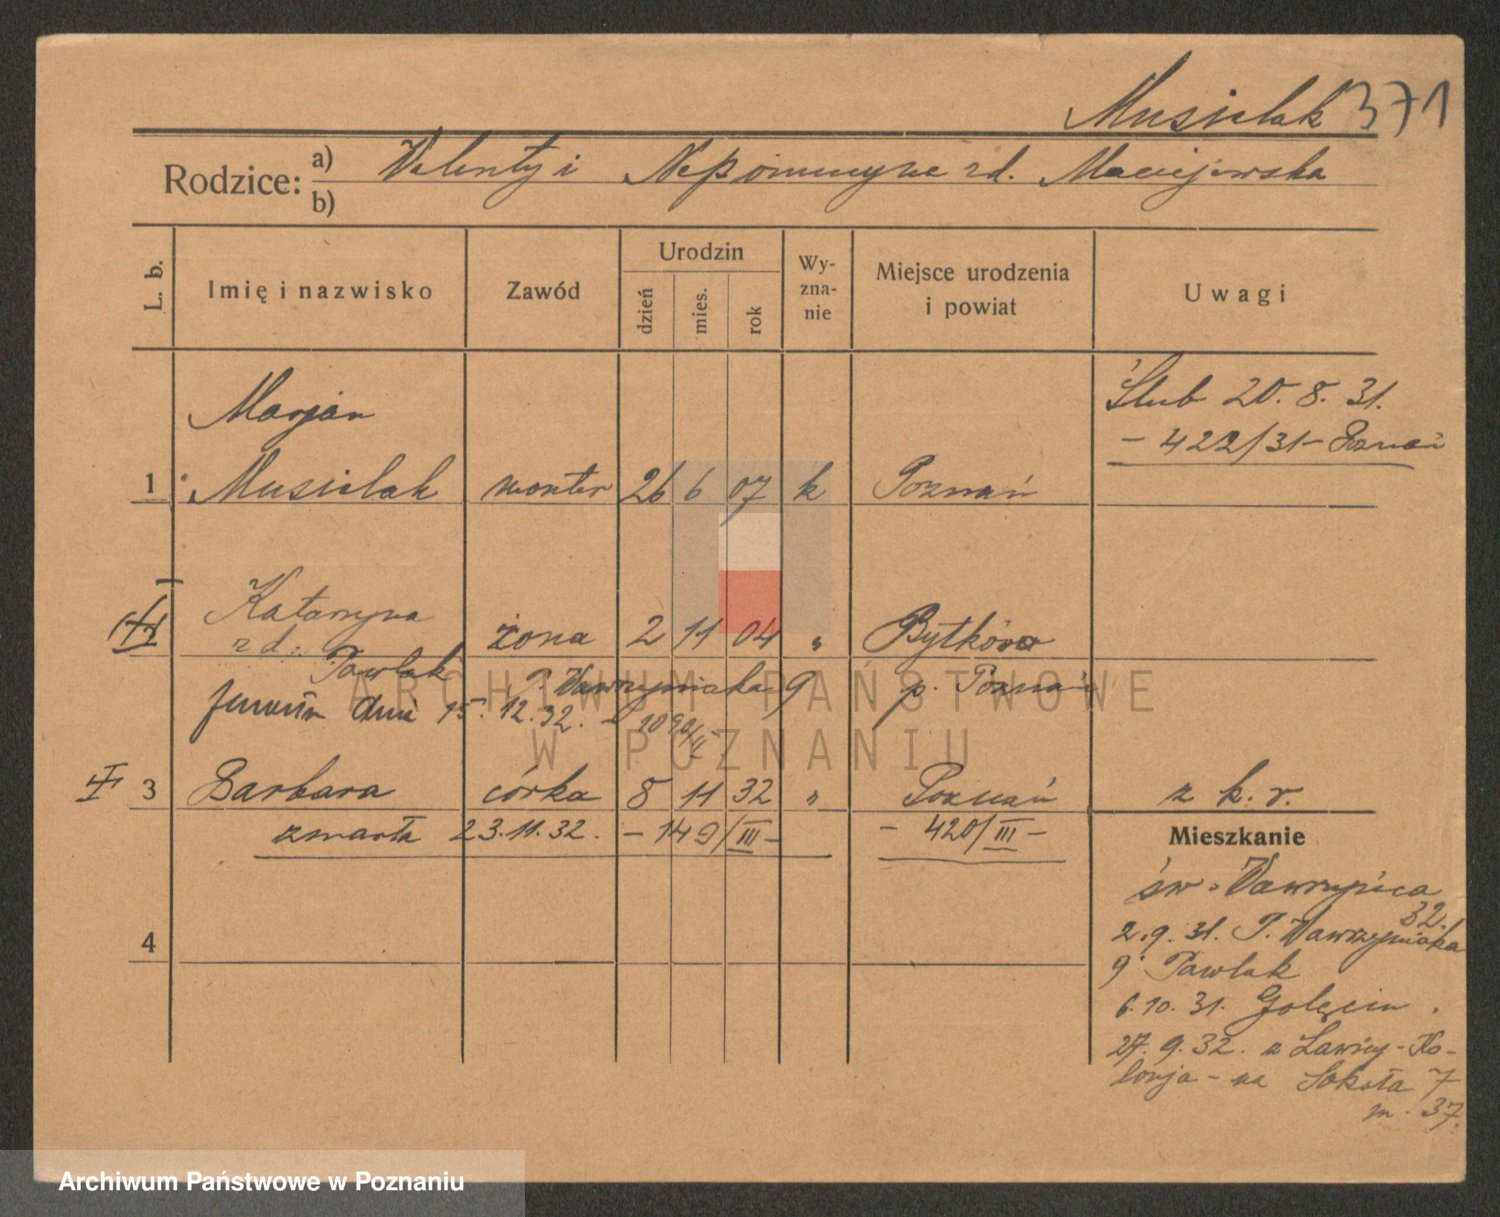 Musielak 371
Rodzice: a) Walenty i Nepomucyna zd. Maciejewska
b)
L. b. Imię i nazwisko Zawód Urodzin dzień mies. rok Wy-zna-nie Miejsce urodzenia i powiat Uwagi
Ślub 20. 8. 31.
- 422/31 - Poznań
Marjan
1 Musielak monter 26 6 07 k Poznań
Katarzyna
zd. żona 2 11 04 „ Bytkowo
Pawlak P. Wawrzyniaka 9 p. Poznań
dnia 15. 12. 32.
3 Barbara córka 8 11 32 „ Poznań z k. r.
zmarła 23. 11. 32. - 149/III - - 420/III -
Mieszkanie
św. Wawrzyńca
32.
2. 9. 31. P. Wawrzyniaka
9 Pawlak
4
6. 10. 31. Golęcin.
27. 9. 32. z Ławicy-Ko-
lonja - na Sokoła 7
m. 37.
ARCHIWUM PAŃSTWOWE
W POZNANIU
Archiwum Państwowe w Poznaniu